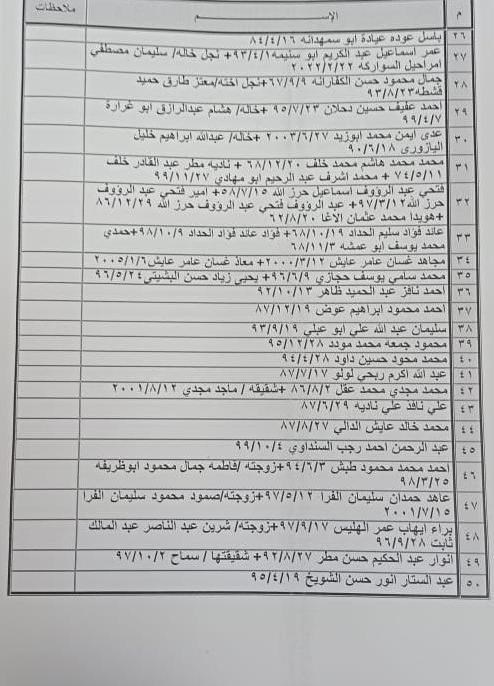 م الإســـم ملاحظات
٢٦ باسل عوده عيادة ابو سمهدانه ٨٤/٤/١٦
٢٧ عمر اسماعيل عبد الكريم ابو سنيمه ٩٣/٤/١+ نجل خاله/ سليمان مصطفي
امراحيل السواركه ٢٠٢٢/٢/٢٢
٢٨ جمال محمود حسن الكفارنه ٦٧/٩/٩+نجل اخته/معتز طارق حميد
قشطه ٩٣/٨/٢٣
٢٩ احمد عفيف حسين دحلان ٩٥/٧/٢٣ +خاله/ هشام عبدالرازق ابو غرارة
٩٩/٤/٧
٣٠ عدي ايمن محمد ابوزيد ٢٠٠٣/٦/٢٧ +خاله/ عبدالله ابراهيم خليل
اليازوري ٩٠/٦/١٨
٣١ محمد محمد هاشم محمد خلف ٦٨/١٢/٢٠+ ناديه مطر عبد القادر خلف
٧٤/٥/١١ + محمد اشرف عبد الرحيم ابو مهادي ٩٩/١١/٢٧
٣٢ فتحي عبد الرؤوف اسماعيل حرز الله ٥٨/٧/١٥+ امير فتحي عبد الرؤوف
حرز الله ٩٧/٣/١٢+ عبد الرؤوف فتحي عبد الرؤوف حرز الله ٨٦/١٢/٢٩
+هويدا محمد عثمان الاغا ٦٢/٨/٢٠
٣٣ عائد فؤاد سليم الحداد ٦٨/١٠/١٩+ فؤاد عائد فؤاد الحداد ٩٨/١٠/٩+حمدي
محمد يوسف ابو عمشه ٦٨/١١/٣
٣٤ مجاهد غسان عامر عايش ٢٠٠٠/٣/١٢+ معاذ غسان عامر عايش ٢٠٠٥/١/٦
٣٥ محمد سامي يوسف حجازي ٩٦/٦/٩+ يحيى زياد حسن البشيتي ٩٦/٥/٢٤
٣٦ احمد نافز عبد الحميد ظاهر ٩٢/١٠/١٣
٣٧ احمد محمود ابراهيم عوض ٨٧/١٢/١٩
٣٨ سليمان عبد الله علي ابو عبلي ٩٣/٩/١٩
٣٩ محمود جمعه محمد مودد ٩٥/١٢/٢٨
٤٠ محمد محود حسين داود ٩٤/٤/٢٨
٤١ عبد الله اكرم ربحي لولو ٨٧/٧/١٧
٤٢ محمد مجدي محمد عقل ٨٦/٨/٢ +شقيقه / ماجد مجدي ٢٠٠١/٨/١٢
٤٣ علي نافذ علي ناديه ٨٧/٦/٢٩
٤٤ محمد خالد عايش الدالي ٨٧/٨/٢٧
٤٥ عبد الرحمن احمد رجب السنداوي ٩٩/١٠/٤
٤٦ احمد محمد محمود طبش ٩٤/٦/٣+زوجته /فاطمه جمال محمود ابوظريفه
٩٨/٣/٢٥
٤٧ عاهد حمدان سليمان الفرا ٩٧/٥/١٢+زوجته/صمود محمود سليمان الفرا
٢٠٠١/٧/١٥
٤٨ براء ايهاب عمر الهليس ٩٧/٩/١٧+زوجته/ شرين عبد الناصر عبد المالك
ثابت ٩٦/٩/٢٨
٤٩ انوار عبد الحكيم حسن مطر ٩٢/٨/٢٧+ شقيقتها / سماح ٩٧/١٠/٢
٥٠ عبد الستار انور حسن الشويخ ٩٥/٤/١٩